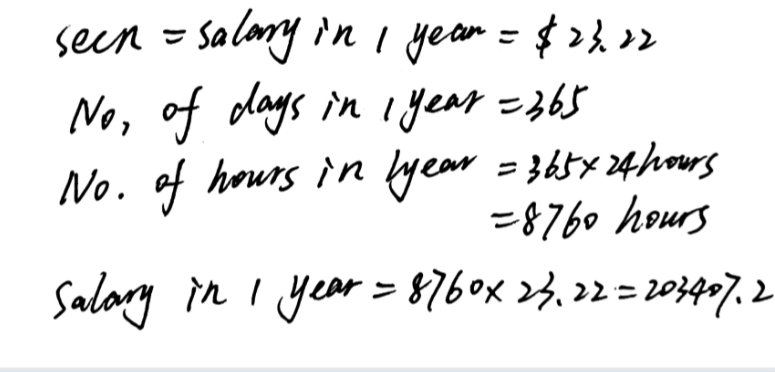 seen = salary in 1 year = $23.22
No, of days in 1 year = 365
No. of hours in 1year = 365 × 24 hours
= 8760 hours
Salary in 1 year = 8760 × 23.22 = 203407.2